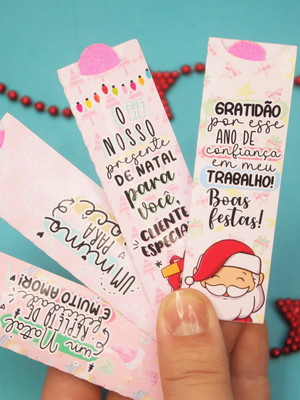 GRATIDÃO
por esse
ANO DE
confiança
em meu
TRABALHO!
Boas
festas!
O
NOSSO
presente
DE NATAL
para
VOCÊ,
CLIENTE
ESPECIAL
UM mimo
PARA
você
um Natal
REPLETO DE
felicidade
E MUITO AMOR!